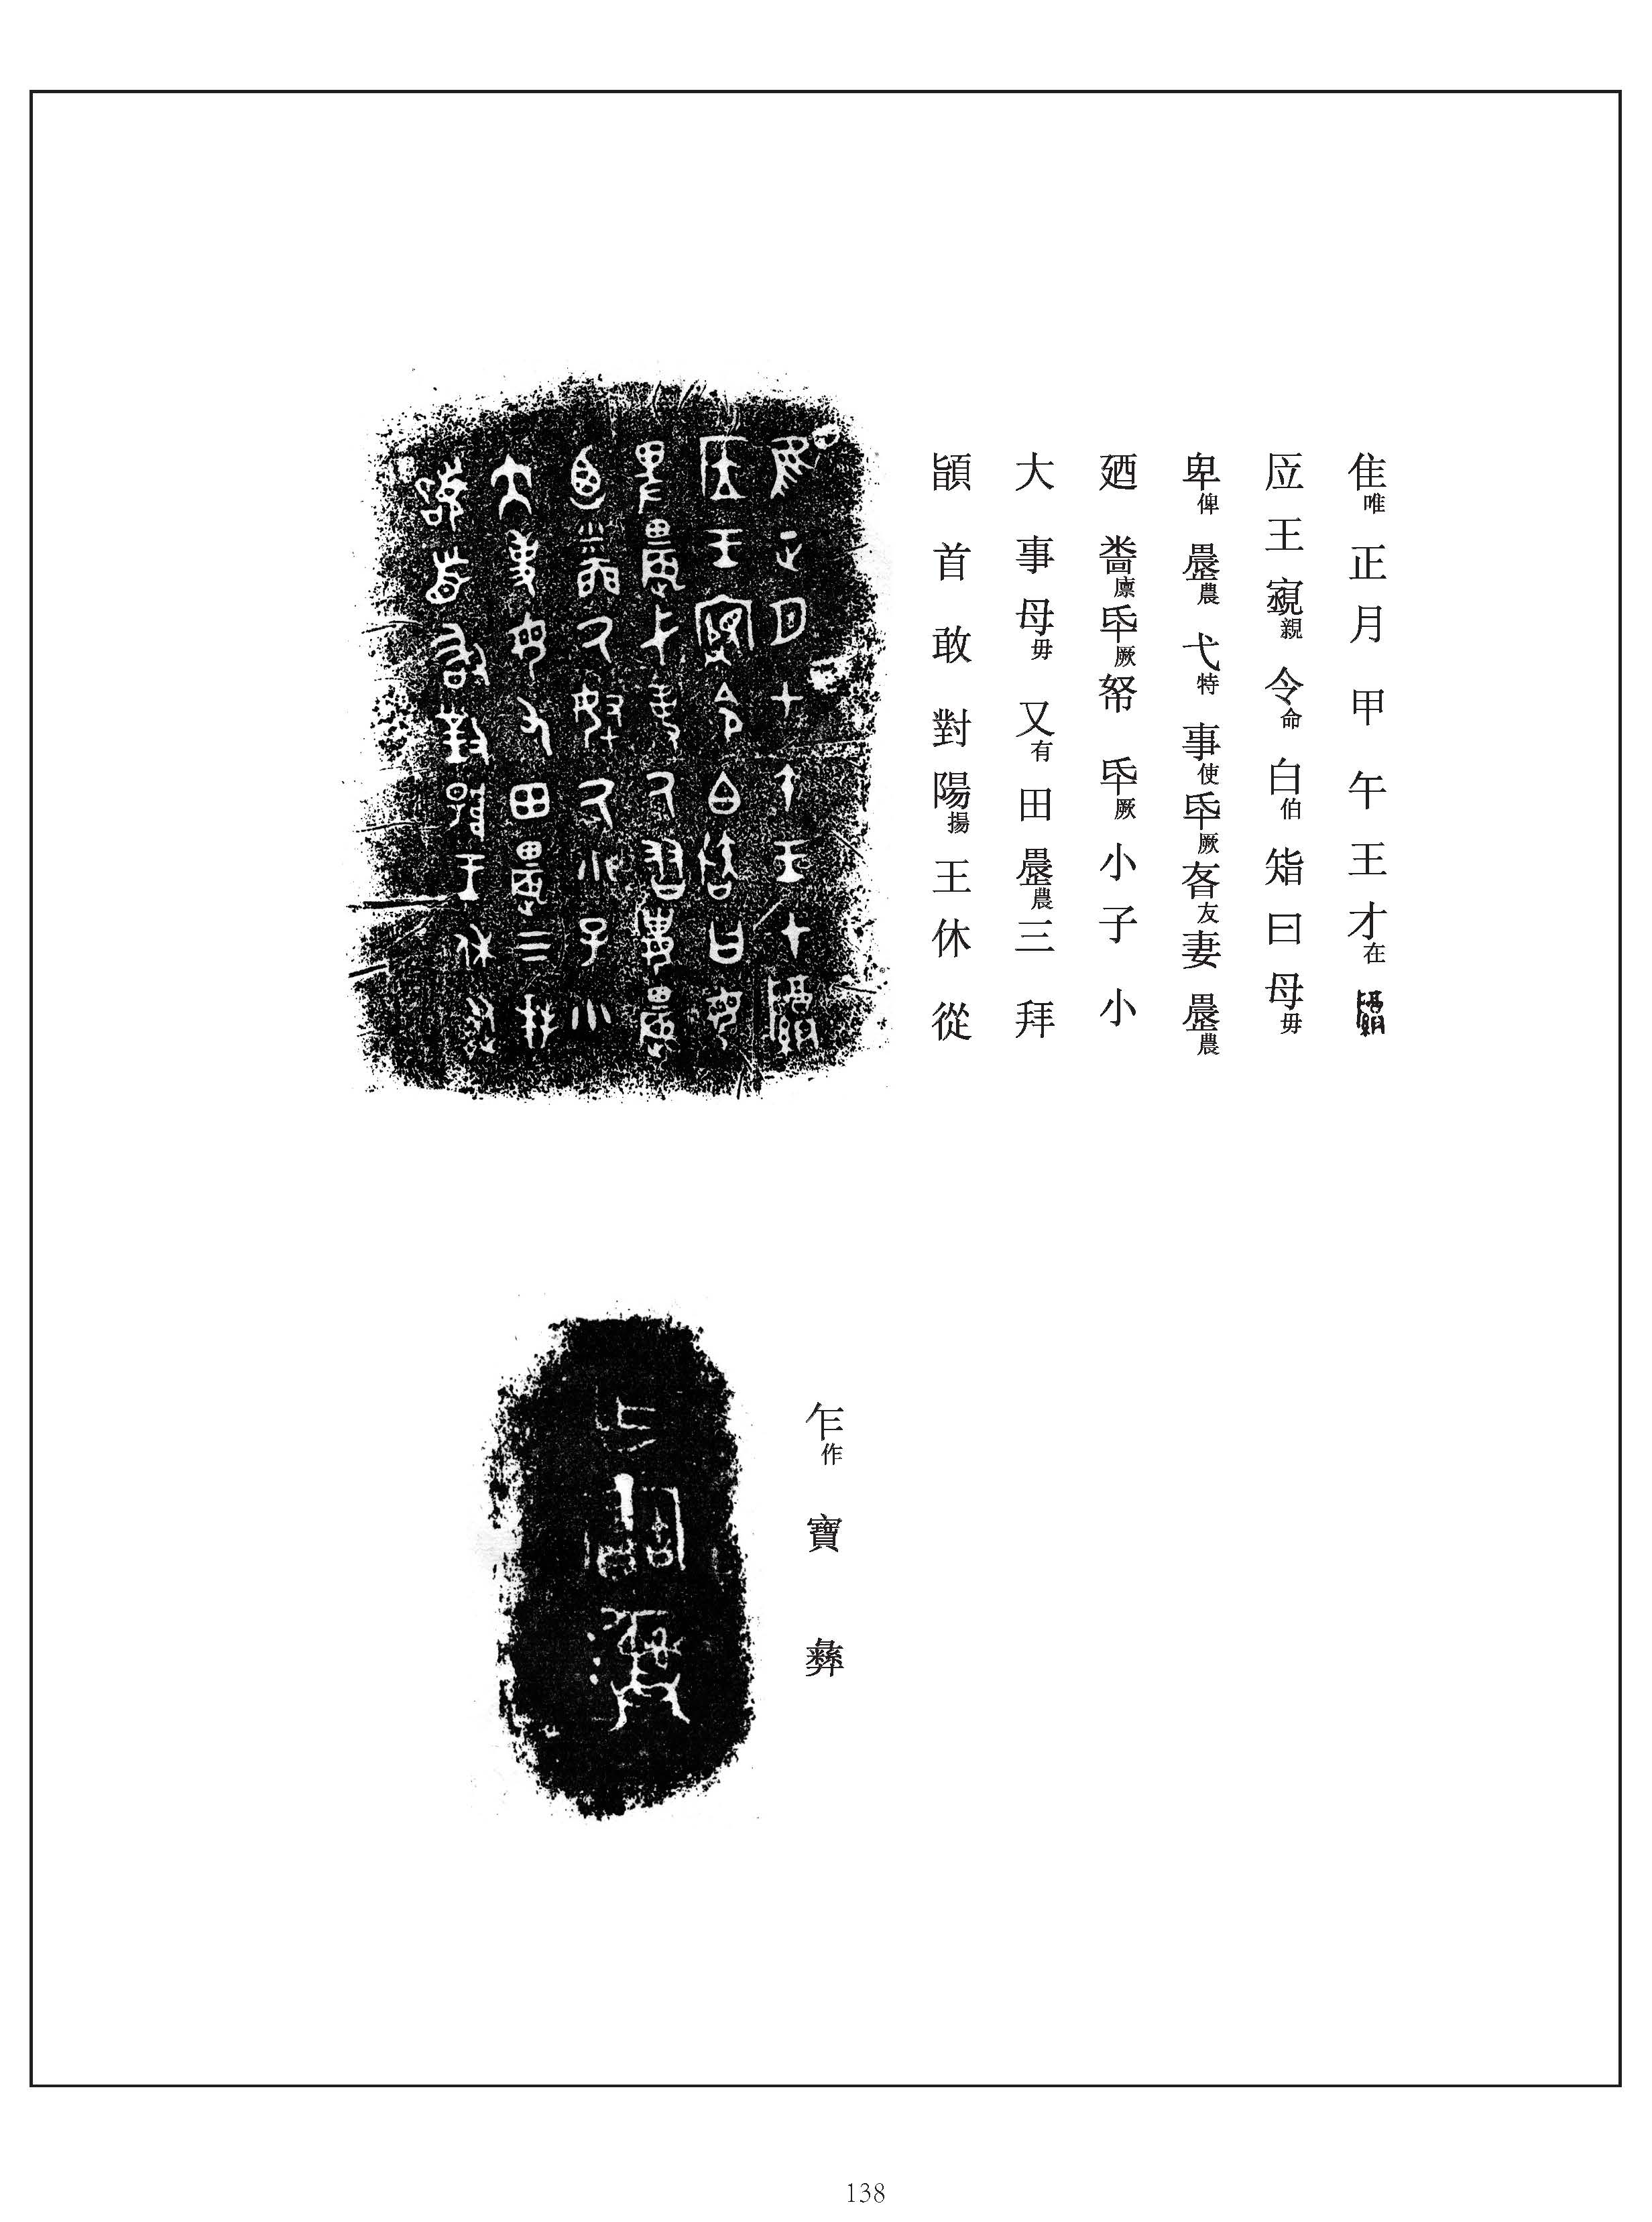 隹唯正月甲午王才在
㡴王寴親令命白伯㫖曰母毋
卑俾農弋特事使氒厥友妻農
廼廩氒厥帑氒厥小子小
大事母毋又有田農三拜
䭫首敢對陽揚王休從
乍作寶彝
138